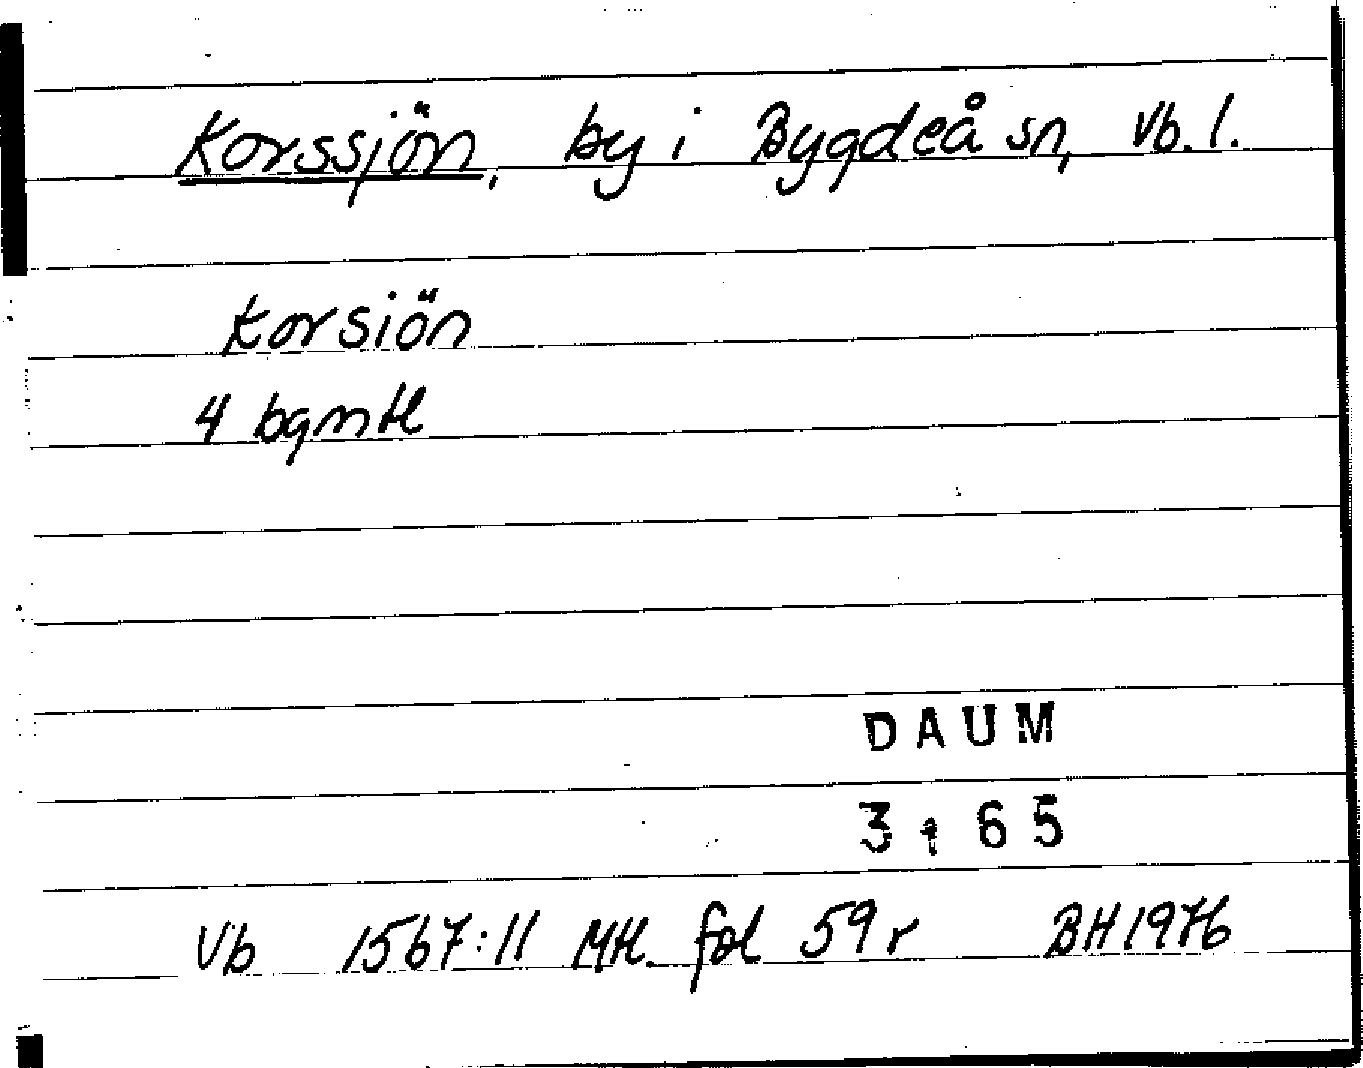 Korssjön, by i Bygdeå sn, Vb. l.
Korsiön
4 bgmtl
DAUM
3165
Vb 1567:11 Mtl. fol 59r BH1976